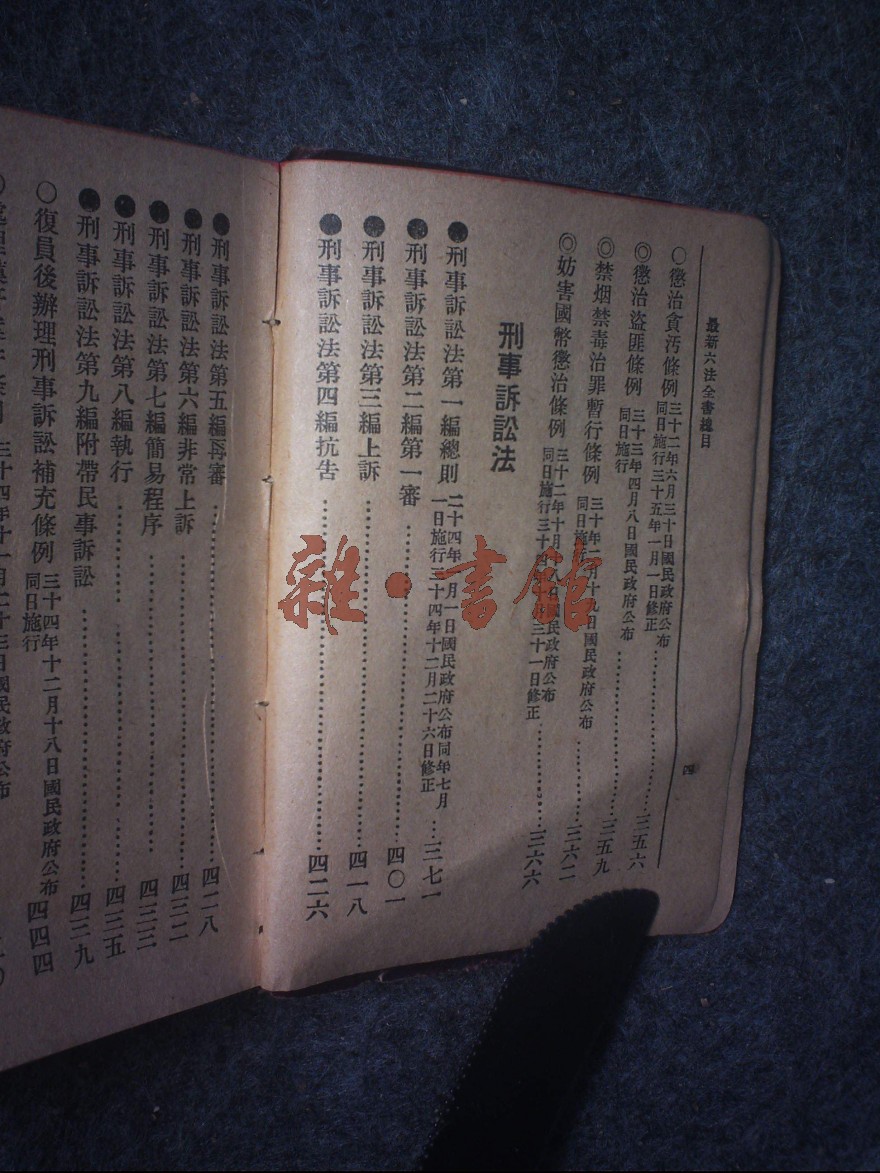 最新六法全書總目
四
○懲治貪汚條例 三十二年六月三十日國民政府公布
同日施行三十五年一月一日修正……三五六
◎懲治盜匪條例 三十三年四月八日國民政府公布
同日施行……三五九
◎禁烟禁毒治罪暫行條例 三十年二月十九日國民政府公布
同日施……三六二
◎妨害國幣懲治條例 三十二年十月十八日國民政府公布
同日施行三十四年 三十一日修正……三六六
刑事訴訟法
●刑事訴訟法第一編總則 二十四年一月一日國民政府公布同年七月
一日施行三十四年十二月二十六日修正……三七一
●刑事訴訟法第二編第一審……四〇一
●刑事訴訟法第三編上訴……四一八
●刑事訴訟法第四編抗告……四二六
●刑事訴訟法第五編再審……四二八
●刑事訴訟法第六編非常上訴……四三二
●刑事訴訟法第七編簡易程序……四三三
●刑事訴訟法第八編執行……四三五
●刑事訴訟法第九編附帶民事訴訟……四三九
○復員後辦理刑事訴訟補充條例 三十四年十二月十八日國民政府公布
同日施行……四四四
三十四年十一月二十三日國民政府公布
雜·書館